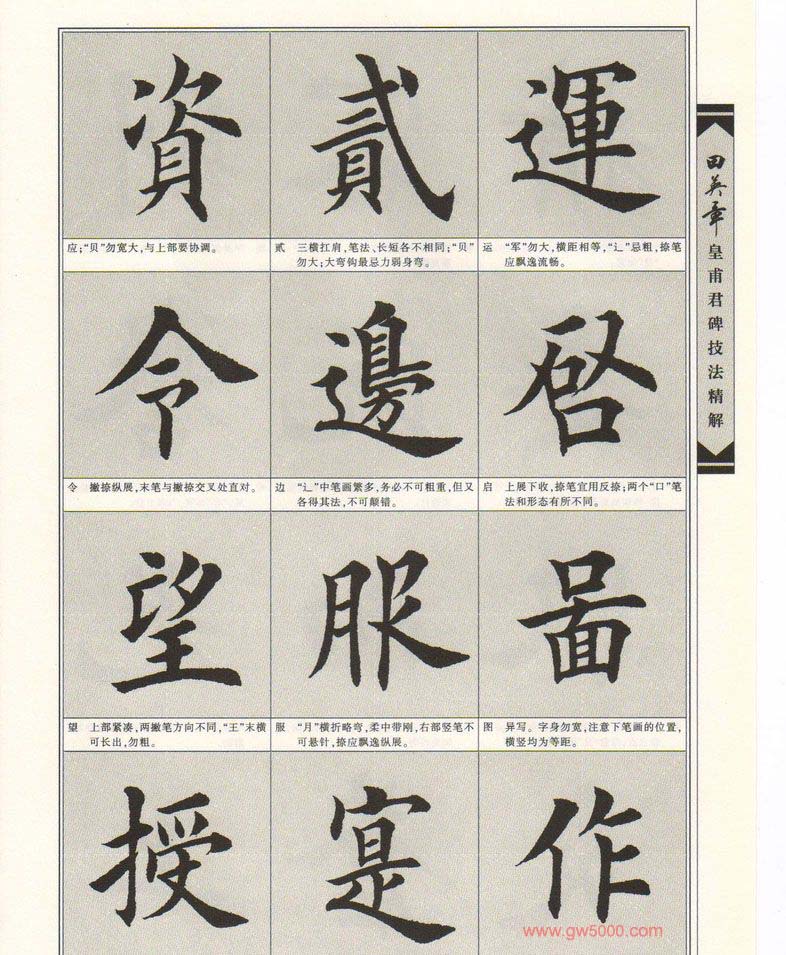 資 貳 運
应;“贝”勿宽大,与上部要协调。
贰 三横扛肩,笔法、长短各不相同;“贝”
勿大;大弯钩最忌力弱身弯。
运 “军”勿大,横距相等,“辶”忌粗,捺笔
应飘逸流畅。
令 邊 啓
令 撇捺纵展,末笔与撇捺交叉处直对。
边 “辶”中笔画繁多,务必不可粗重,但又
各得其法,不可颠错。
启 上展下收,捺笔宜用反捺;两个“口”笔
法和形态有所不同。
望 服 啚
望 上部紧凑,两撇笔方向不同,“王”末横
可长出,勿粗。
服 “月”横折略弯,柔中带刚,右部竖笔不
可悬针,捺应飘逸纵展。
图 异写。字身勿宽,注意下笔画的位置,
横竖均为等距。
授 寔 作
田英章
皇甫君碑技法精解
www.gw5000.com